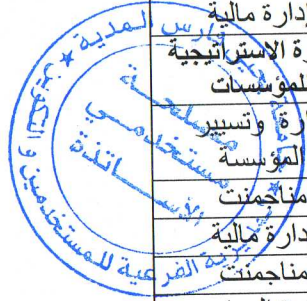 إدارة مالية
رة الاستراتيجية
للمؤسسات
رة وتسيير
المؤسسة
مناجمنت
إدارة مالية
مناجمنت
فارس المدية
المديرية الفرعية للمستخدمين و التكوين
مصلحة
مستخدمي
الأساتذة